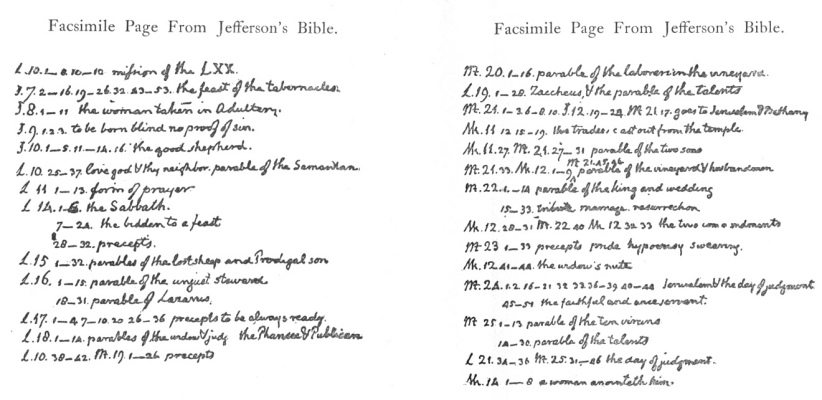 Facsimile Page From Jefferson's Bible.
L. 10. 1–8. 10–10 mission of the LXX.
J. 7. 2–16. 19–26. 32. 43–53. the feast of the tabernacles.
J. 8. 1–11 the woman taken in Adultery.
J. 9. 1. 2. 3. to be born blind no proof of sin.
J. 10. 1–5. 11–14. 16. the good shepherd.
L. 10. 25–37. love god & thy neighbor. parable of the Samaritan.
L 11 1–13. form of prayer
L 14. 1–6. the Sabbath.
7–24. the bidden to a feast
28–32. precepts.
L. 15 1–32. parables of the lost sheep and Prodigal son
L. 16. 1–15. parable of the unjust steward.
18–31. parable of Lazarus.
L. 17. 1–4. 7–10. 20 26–36 precepts to be always ready.
L. 18. 1–14. parables of the widow & judge the Pharisee & Publican
L. 10. 38–42. Mt. 19. 1–26 precepts
Facsimile Page From Jefferson's Bible.
Mt. 20. 1–16. parable of the laborers in the vineyard.
L. 19. 1–28. Zaccheus, & the parable of the talents
Mt. 21. 1–3. 6–8. 10. J. 12. 19–24. Mt 21. 17. goes to Jerusalem & Bethany
Mk. 11 12 15–19. the traders cast out from the temple.
Mk. 11. 27. Mt. 21. 27–31 parable of the two sons
Mt. 21. 33. Mk. 12. 1–9 Mt 21. 45. 46 parable of the vineyard & husbandmen
Mt. 22. 1–14 parable of the king and wedding
15–33. tribute marriage resurrection
Mk. 12. 28–31 Mt. 22 40 Mk 12 32 33 the two commandments
Mt 23 1–33 precepts pride hypocrisy swearing.
Mk. 12 41–44. the widow's mite
Mt. 24. 1. 2 16–21 32 33 36–39 40–44 Jerusalem & the day of judgment
45–51 the faithful and servant.
Mt 25 1–13 parable of the ten virgins
14–30. parable of the talents
L 21. 34–36 Mt. 25. 31–46 the day of judgment.
Mk. 14 1–8 a woman anointeth him.